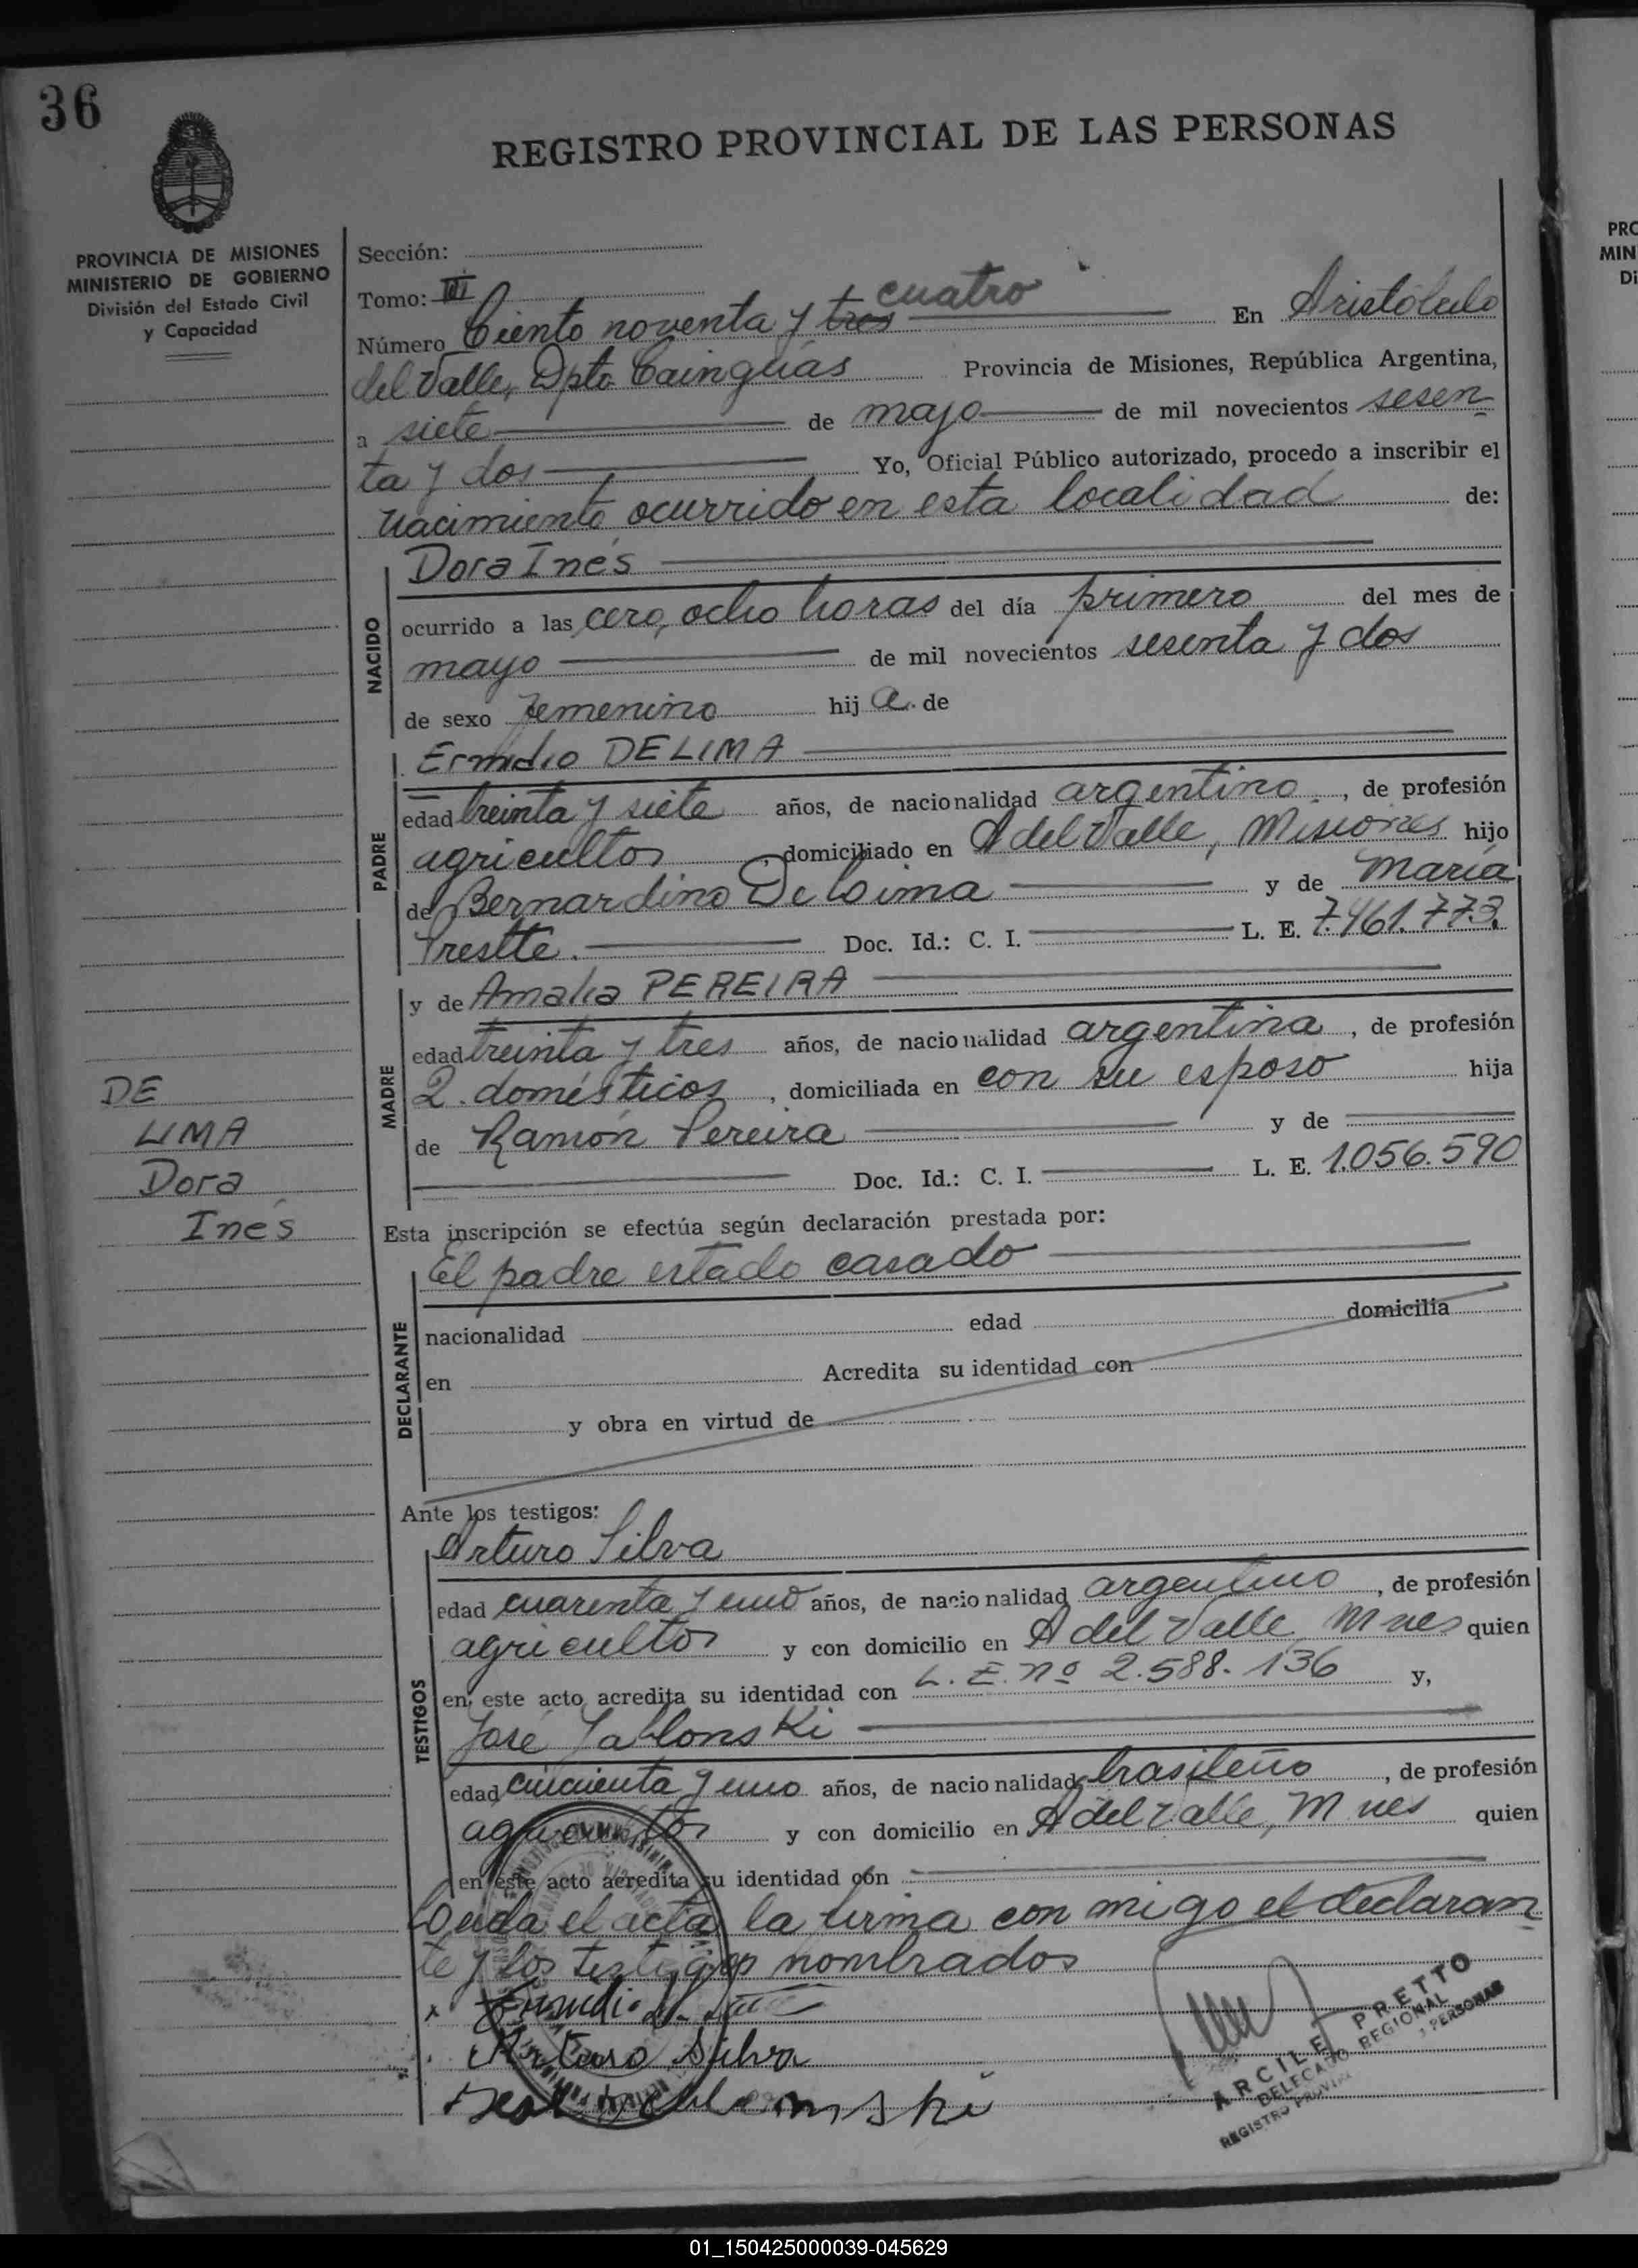 36
REGISTRO PROVINCIAL DE LAS PERSONAS
PROVINCIA DE MISIONES
MINISTERIO DE GOBIERNO
División del Estado Civil
y Capacidad
Sección:
Tomo: III
Número Ciento noventa y tres cuatro En Aristóbulo
del Valle, Dpto Cainguas Provincia de Misiones, República Argentina,
a siete de mayo de mil novecientos sesen
ta y dos Yo, Oficial Público autorizado, procedo a inscribir el
nacimiento ocurrido en esta localidad de:
Dora Inés
NACIDO
ocurrido a las cero, ocho horas del día primero del mes de
mayo de mil novecientos sesenta y dos
de sexo femenino hij a de
Ermidio DE LIMA
PADRE
edad treinta y siete años, de nacionalidad argentino, de profesión
agricultor, domiciliado en A del Valle, Misiones hijo
de Bernardino De Lima y de María
Doc. Id.: C. I. L. E. 7.461.773.
y de Amalia PEREIRA
MADRE
edad treinta y tres años, de nacionalidad argentina, de profesión
Q. domésticos, domiciliada en con su esposo hija
de Ramón Pereira y de
Doc. Id.: C. I. L. E. 1.056.590
DE
LIMA
Dora
Inés
Esta inscripción se efectúa según declaración prestada por:
El padre estado casado
DECLARANTE
nacionalidad edad domicilia
en Acredita su identidad con
y obra en virtud de
Ante los testigos:
Arturo Silva
TESTIGOS
edad cuarenta y uno años, de nacionalidad argentino, de profesión
agricultor y con domicilio en A del Valle, Mnes quien
en este acto acredita su identidad con L. E. nº 2.588.136 y,
José Jablonski
edad cincuenta y uno años, de nacionalidad brasileño, de profesión
agricultor y con domicilio en A del Valle, Mnes quien
en este acto acredita su identidad con
Leida el acta la firma con migo el declaran
te y los testigos nombrados
Arturo Silva
ARCILE PRETTO
DELEGADO REGIONAL
REGISTRO PROVINCIAL PERSONAS
PRO
MIN
Di
01_150425000039-045629